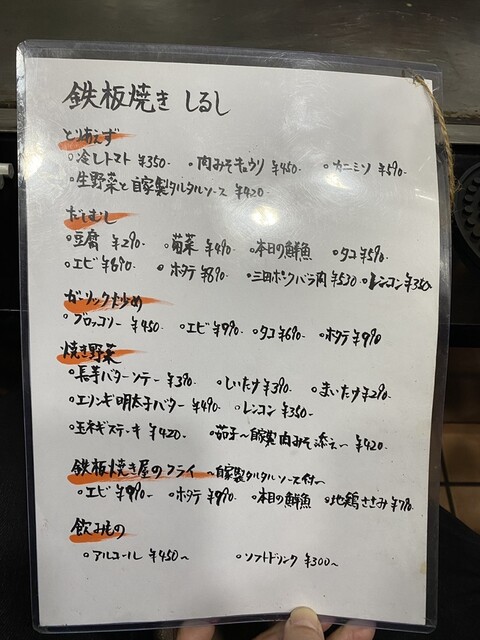 鉄板焼き しるし
とりあえず
○冷しトマト ¥350- ○肉みそキュウリ ¥450- ○カニミソ ¥590-
○生野菜と自家製タルタルソース ¥420-
だしむし
○豆腐 ¥290- ○菊菜 ¥490- ○本日の鮮魚 ○タコ ¥590-
○エビ ¥690- ○ホタテ ¥890- ○三田ポークバラ肉 ¥530- ○レンコン ¥350-
ガーリック炒め
○ブロッコリー ¥450- ○エビ ¥990- ○タコ ¥690- ○ホタテ ¥990
焼き野菜
○長芋バターソテー ¥390- ○しいたけ ¥390- ○まいたけ ¥290-
○エリンギ明太子バター ¥490- ○レンコン ¥350-
○玉ネギステーキ ¥420- ○茄子〜自家製肉みそ添え〜 ¥420-
鉄板焼き屋のフライ 〜自家製タルタルソース付〜
○エビ ¥990- ○ホタテ ¥990- ○本日の鮮魚 ○地鶏ささみ ¥790-
飲みもの
○アルコール ¥450〜 ○ソフトドリンク ¥300〜